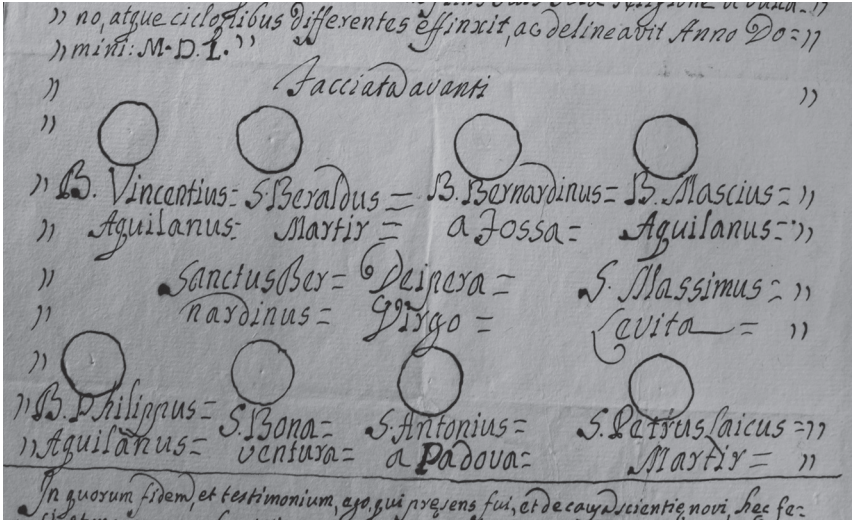 " no, atque ciclolibus differentes effinxit, ac delineavit Anno Do= "
" mini: M·D·L· "
" Facciata davanti "
"
" B. Vincentius= S. Beraldus = B. Bernardinus= B. Mascius= "
" Aquilanus= Martir = a Fossa = Aquilanus= "
" Sanctus Ber= Deipera = S. Massimus = "
" nardinus = Virgo = Levita = "
"
" B. Philippus= S. Bona= S. Antonius= S. Petrus laicus = "
" Aquilanus= ventura= a Padova= Martir = "
In quorum fidem, et testimonium, ego, qui pręsens fui, et de causa scientię novi, hęc fe=